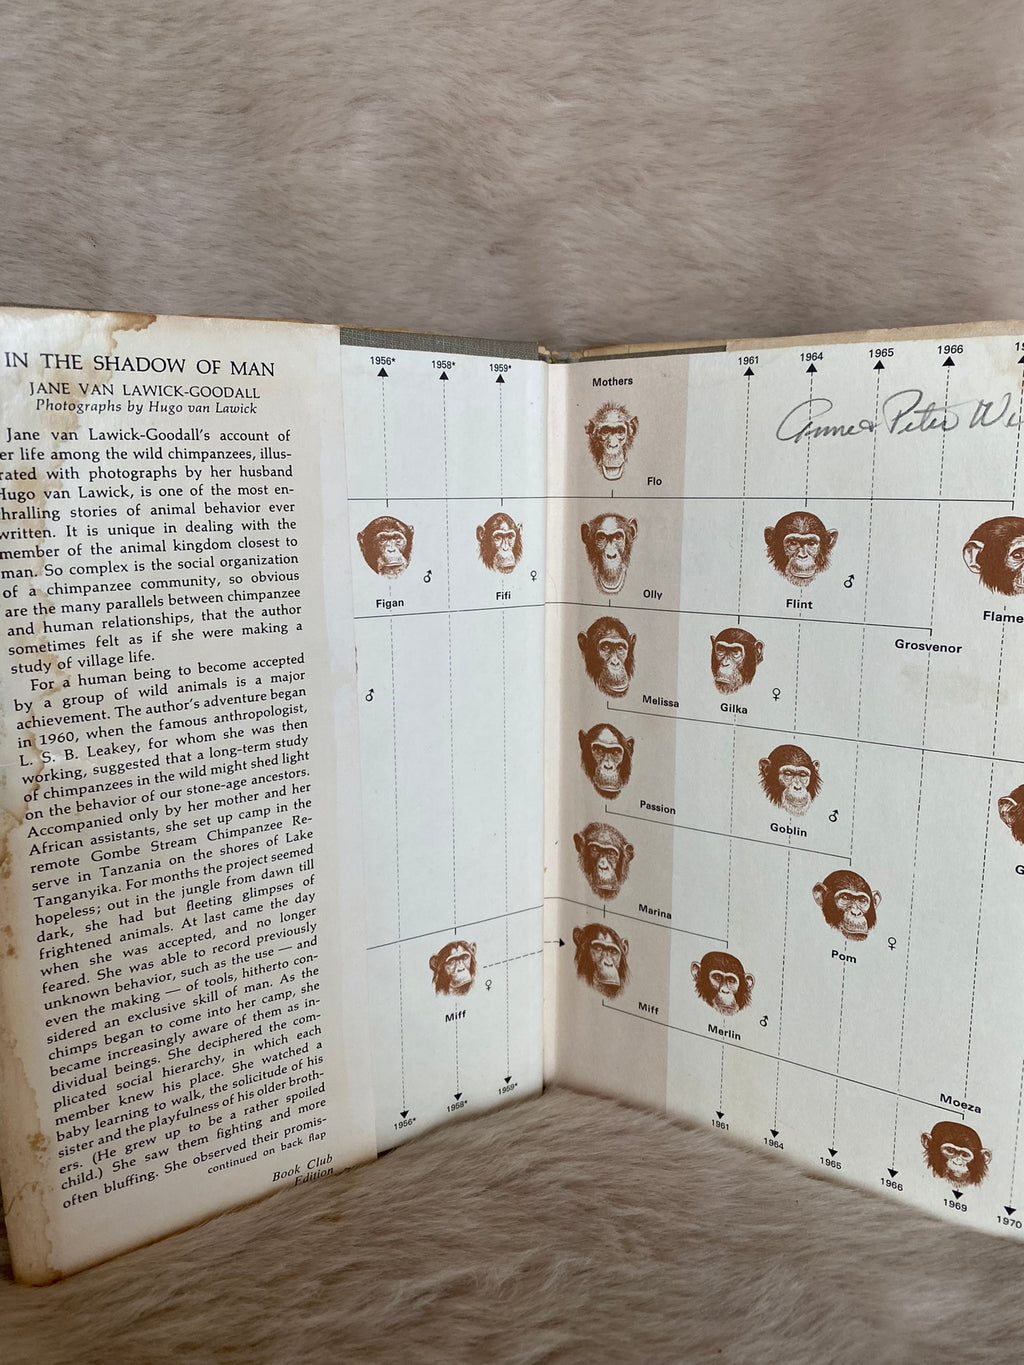 IN THE SHADOW OF MAN
JANE VAN LAWICK-GOODALL
Photographs by Hugo van Lawick
Jane van Lawick-Goodall's account of
er life among the wild chimpanzees, illus-
rated with photographs by her husband
Hugo van Lawick, is one of the most en-
hralling stories of animal behavior ever
written. It is unique in dealing with the
member of the animal kingdom closest to
man. So complex is the social organization
of a chimpanzee community, so obvious
are the many parallels between chimpanzee
and human relationships, that the author
sometimes felt as if she were making a
study of village life.
For a human being to become accepted
by a group of wild animals is a major
achievement. The author's adventure began
in 1960, when the famous anthropologist,
L. S. B. Leakey, for whom she was then
working, suggested that a long-term study
of chimpanzees in the wild might shed light
on the behavior of our stone-age ancestors.
Accompanied only by her mother and her
African assistants, she set up camp in the
remote Gombe Stream Chimpanzee Re-
serve in Tanzania on the shores of Lake
Tanganyika. For months the project seemed
hopeless; out in the jungle from dawn till
dark, she had but fleeting glimpses of
frightened animals. At last came the day
when she was accepted, and no longer
feared. She was able to record previously
unknown behavior, such as the use — and
even the making — of tools, hitherto con-
sidered an exclusive skill of man. As the
chimps began to come into her camp, she
became increasingly aware of them as in-
dividual beings. She deciphered the com-
plicated social hierarchy, in which each
member knew his place. She watched a
baby learning to walk, the solicitude of his
sister and the playfulness of his older broth-
ers. (He grew up to be a rather spoiled
child.) She saw them fighting and more
often bluffing. She observed their promis-
continued on back flap
Book Club
Edition
1956* 1958* 1959*
♂ ♀
Figan Fifi
♂
♀
Miff
1956* 1958* 1959*
1961 1964 1965 1966
Mothers
Anne & Peter
Flo
♂
Olly Flint Flame
Grosvenor
Melissa Gilka ♀
Passion Goblin ♂
Marina Pom ♀
Miff Merlin ♂
Moeza
1961 1964 1965 1966 1969 1970